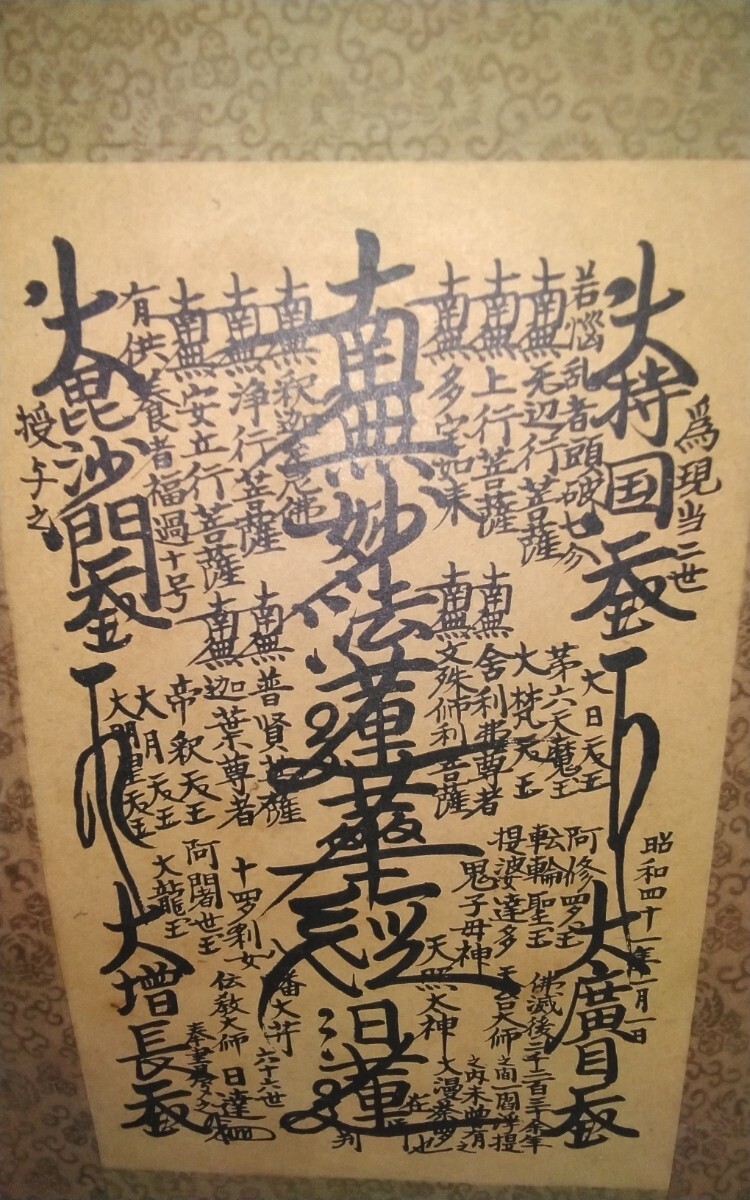 為現当二世
大持国天王
若悩乱者頭破七分
南無无辺行菩薩
南無上行菩薩
南無多宝如来
南無妙法蓮華経
日蓮
在判
南無釈迦牟尼佛
南無浄行菩薩
南無安立行菩薩
有供養者福過十号
大毘沙門天王
授与之
大日天王
第六天魔王
大梵天王
南無舎利弗尊者
南無文殊師利菩薩
南無普賢菩薩
南無迦葉尊者
帝釈天王
大月天王
大明星天王
昭和四十一年一月一日
大廣目天王
阿修羅王
転輪聖王
提婆達多
鬼子母神
十羅刹女
阿闍世王
大龍王
天台大師
天照太神
八幡大菩薩
伝教大師
佛滅後二千二百三十余年
之間一閻浮提
之内未曾有之
大漫荼羅也
六十六世
日達
奉書写之
大増長天王